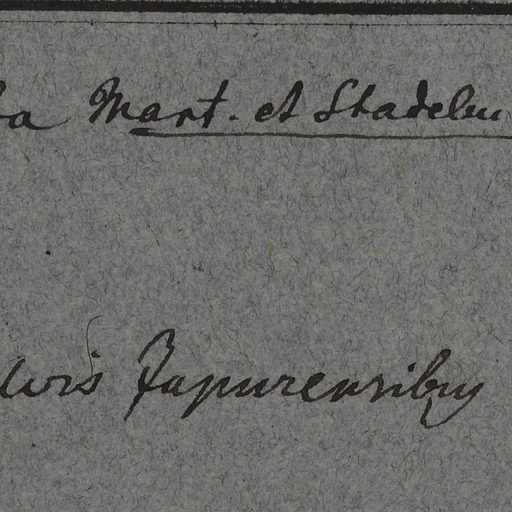 a Mart. et Stadelm
Japurensibus